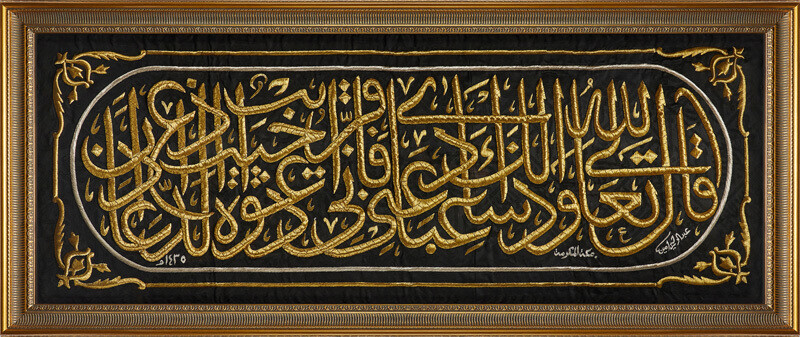 قال الله تعالى وإذا سألك عبادي عني فإني قريب أجيب دعوة الداع إذا دعان
عبدالرحيم أمين
مكة المكرمة
١٤٣٥هـ